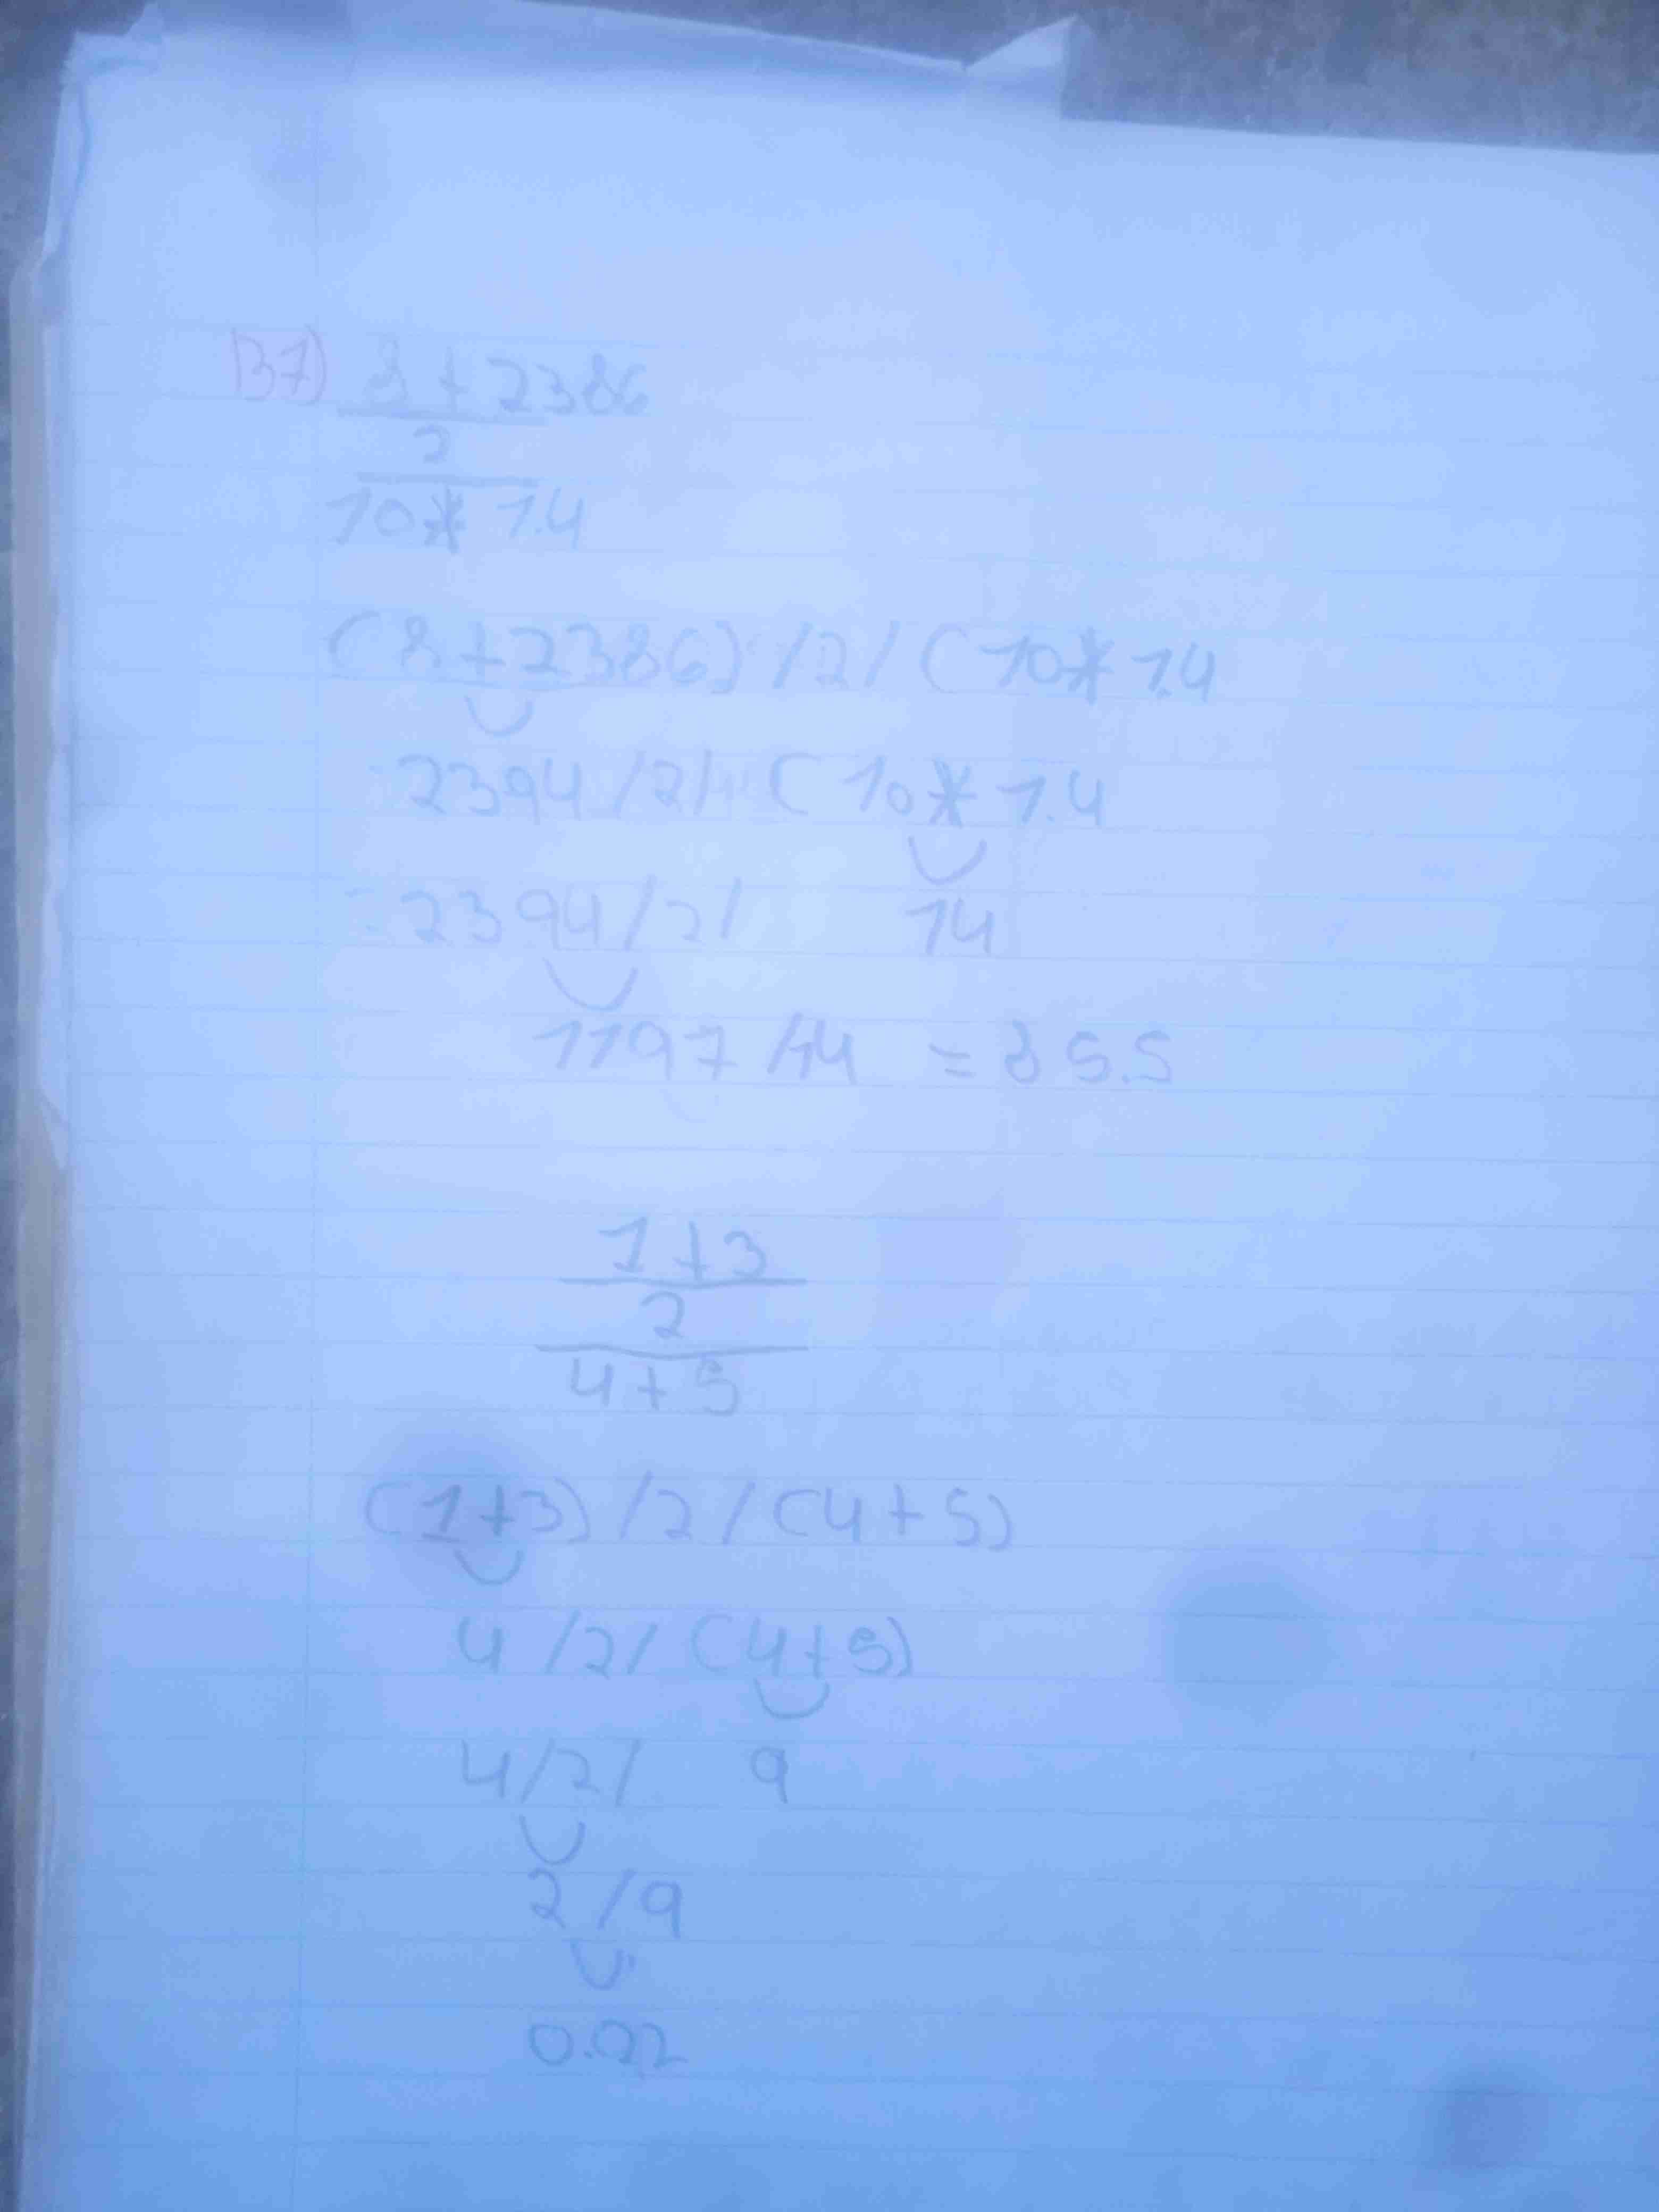 B7) 8 + 2386
2
10 * 1.4
(8 + 2386) /2/ (10 * 1.4
2394 /2/ ( 10 * 1.4
2394 /2/ 14
1197 /14 = 85.5
1 + 3
2
4 + 5
(1+3) /2/ (4+5)
4 /2/ (4+5)
4/2/ 9
2 /9
0.22